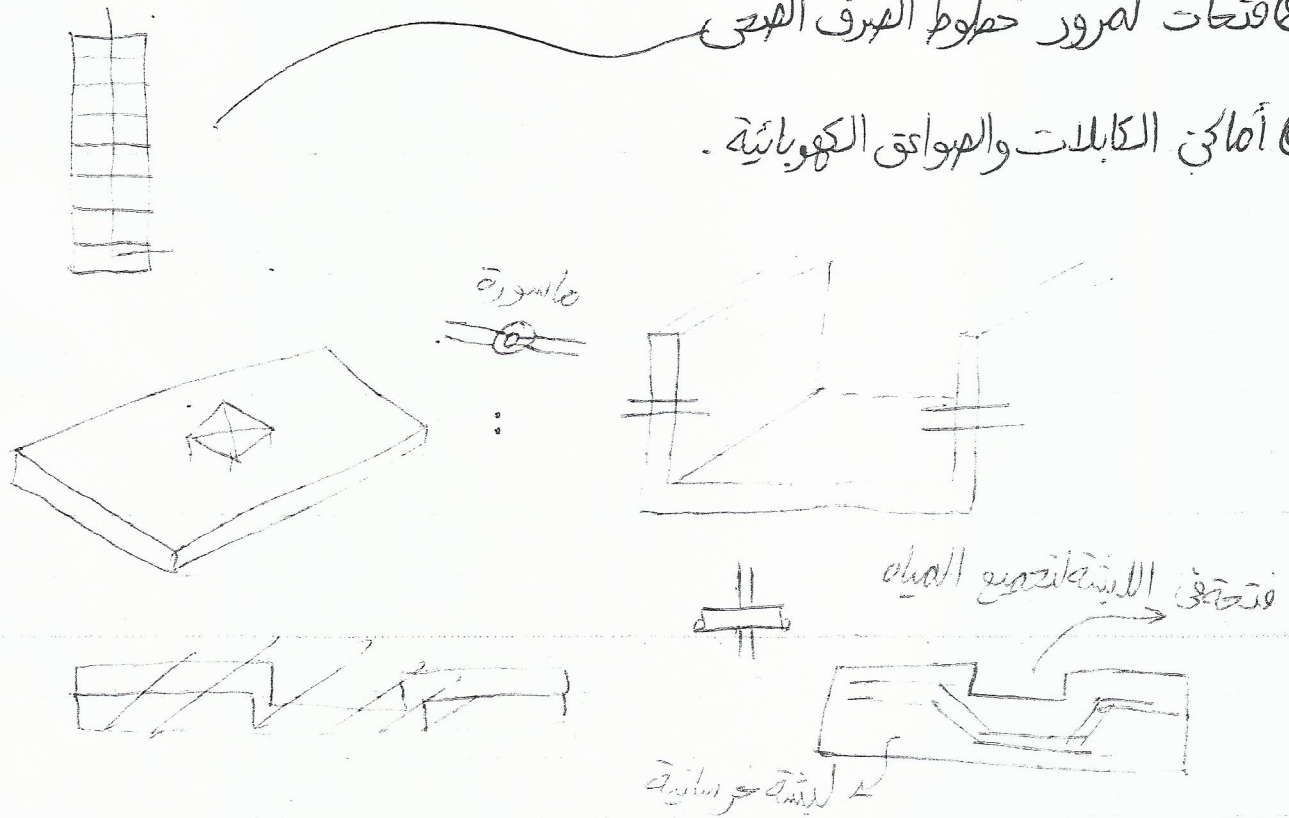 فتحات لمرور خطوط الصرف الصحى
أماكن الكابلات والصواعق الكهربائية.
ماسورة
فتحة فى اللبشة لتجميع المياه
لبشة خرسانية